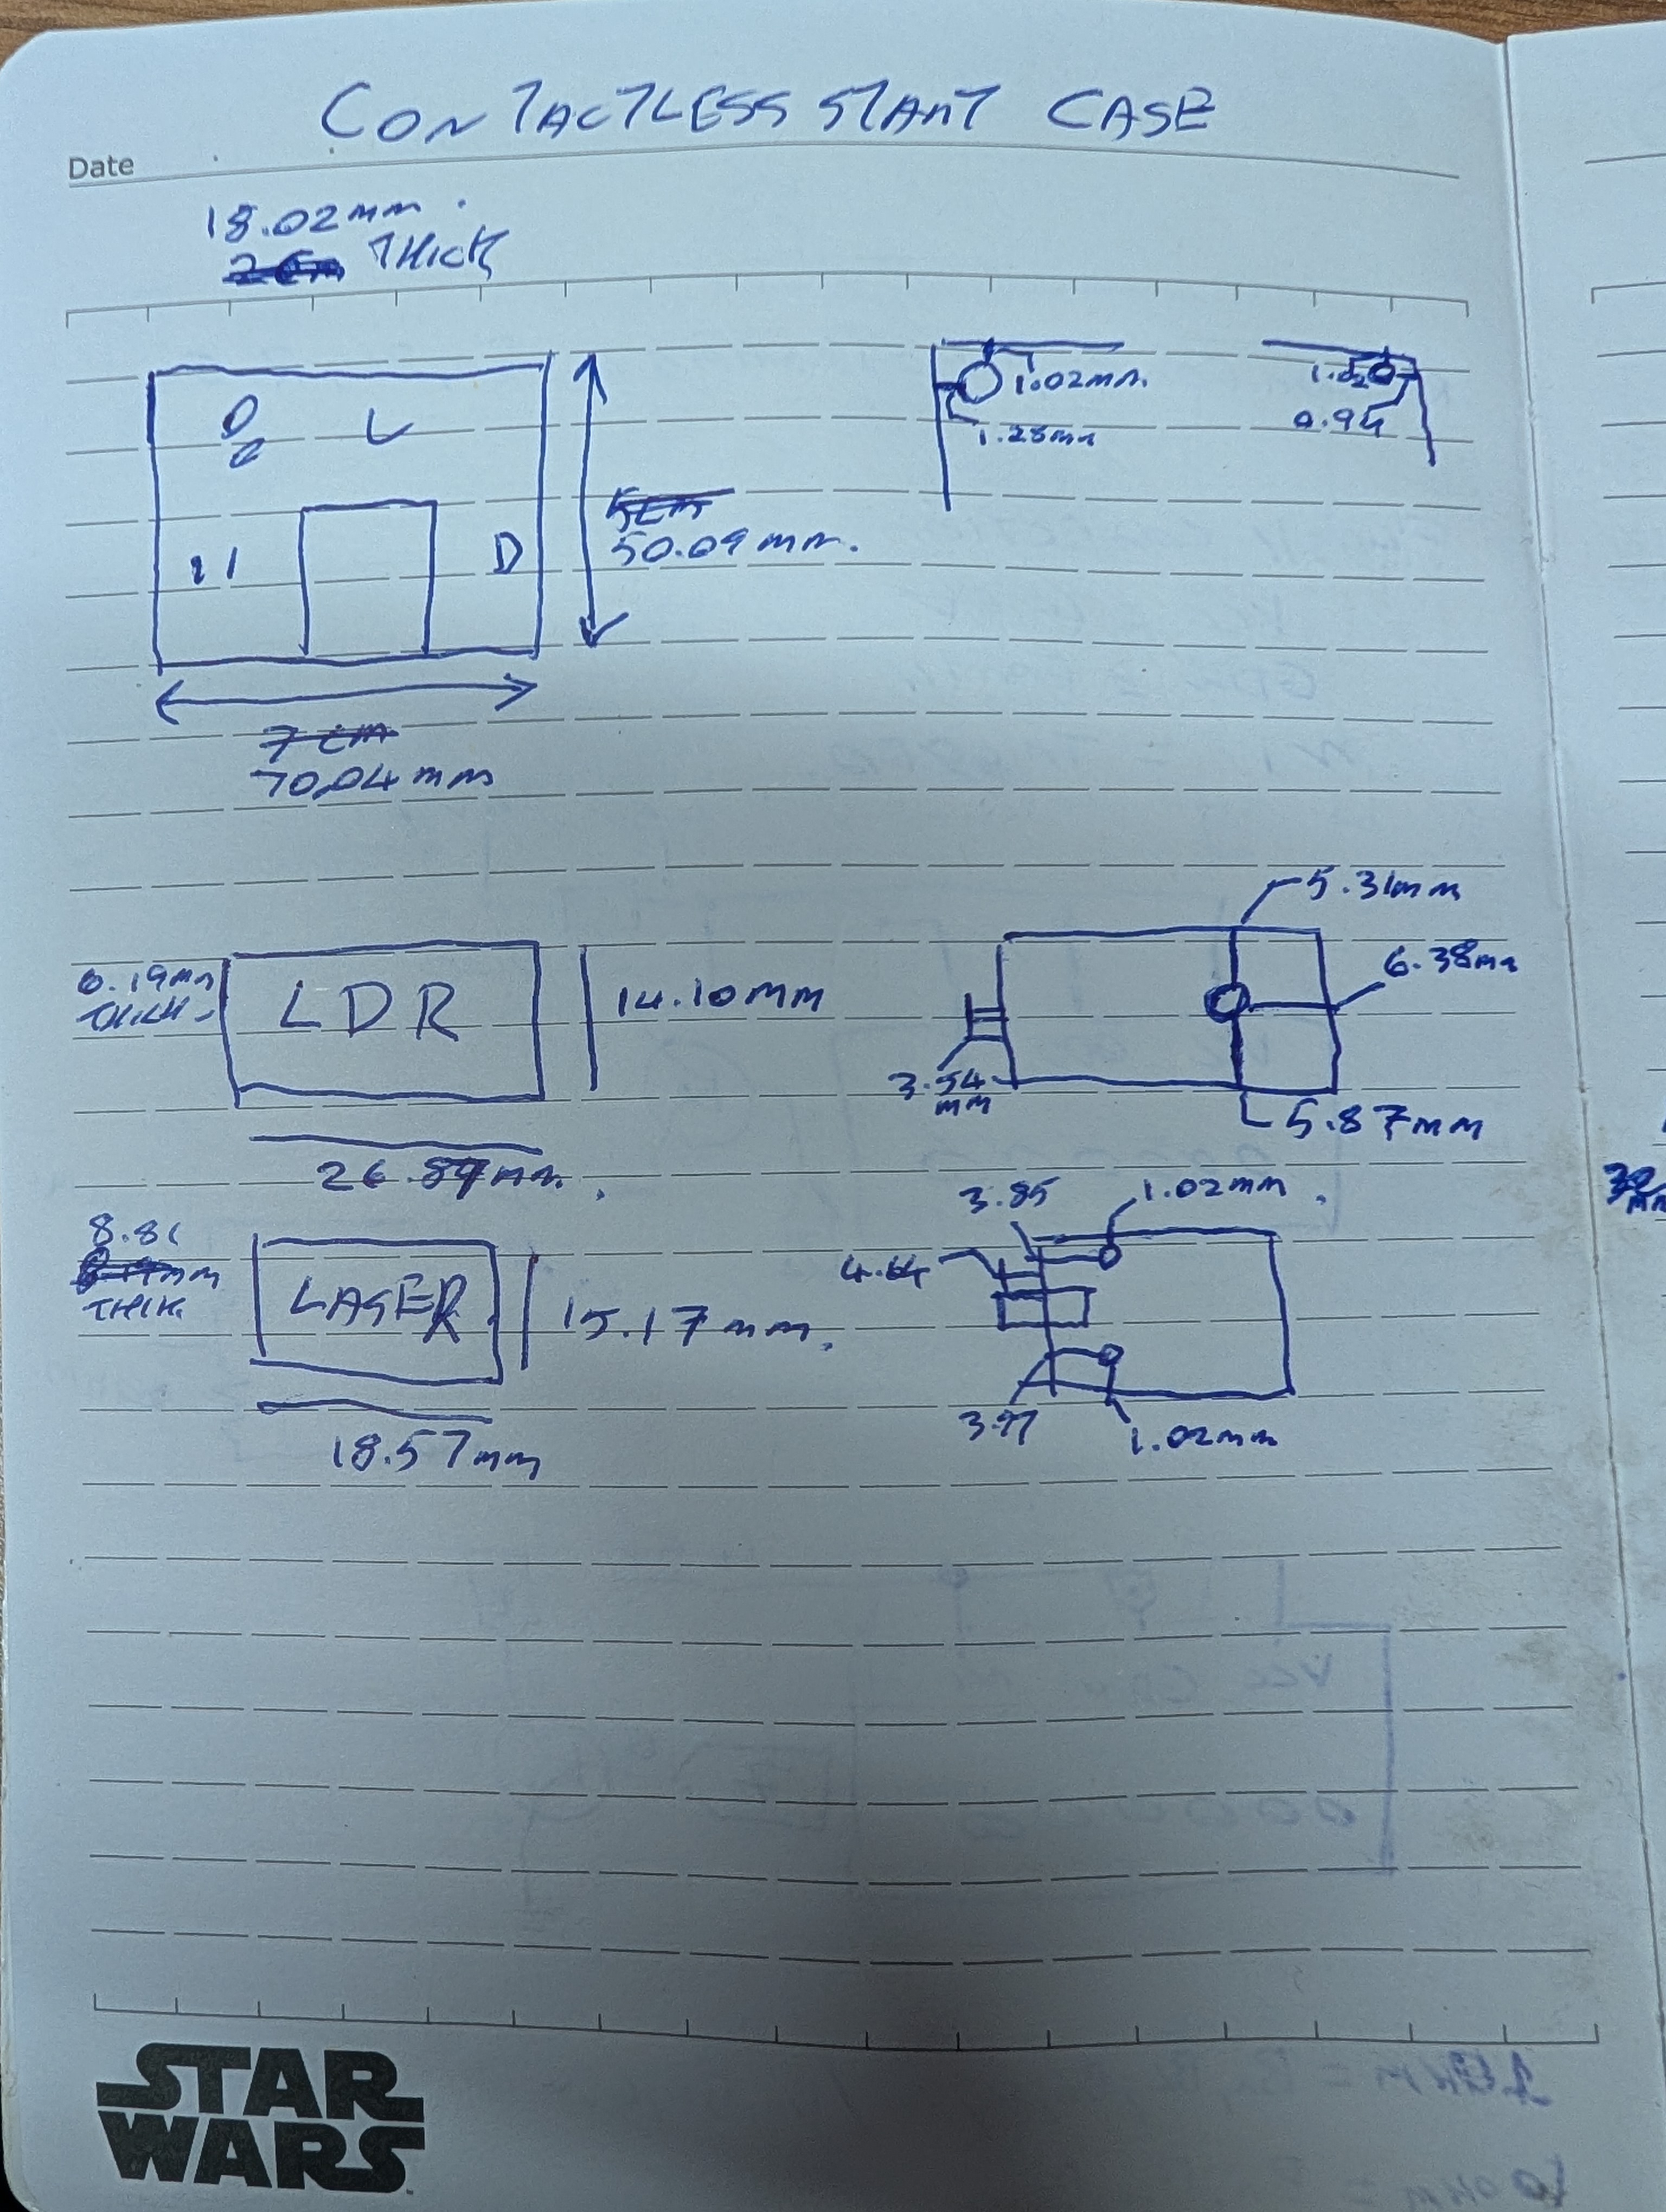 CONTACTLESS START CASE
Date
18.02mm.
THICK
1.02mm.
1.28mm
1.02
0.94
L
11
D
5cm
50.09mm.
7cm
70.04mm
5.31mm
6.19mm
THICK
LDR
14.10mm
6.38mm
3.54
mm
5.87mm
3.85
1.02mm
8.81
THICK
LASER
15.17mm
4.64
3.97
1.02mm
18.57mm
STAR
WARS